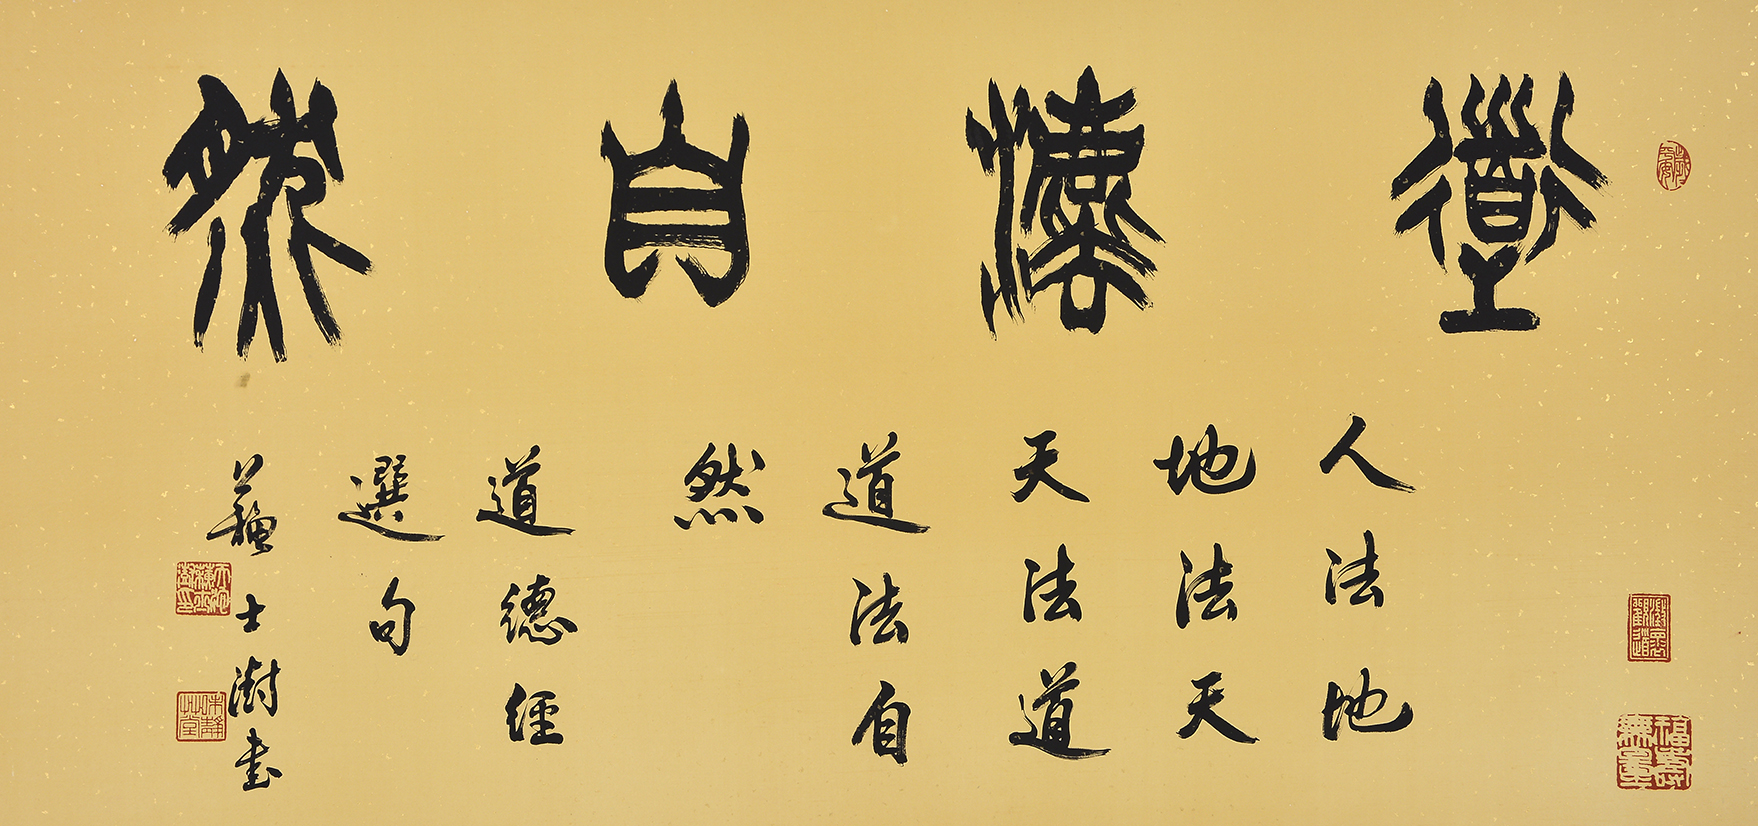 道灋自然
人法地
地法天
天法道
道法自
然
道德經
選句
蘇士澍書
福壽無量